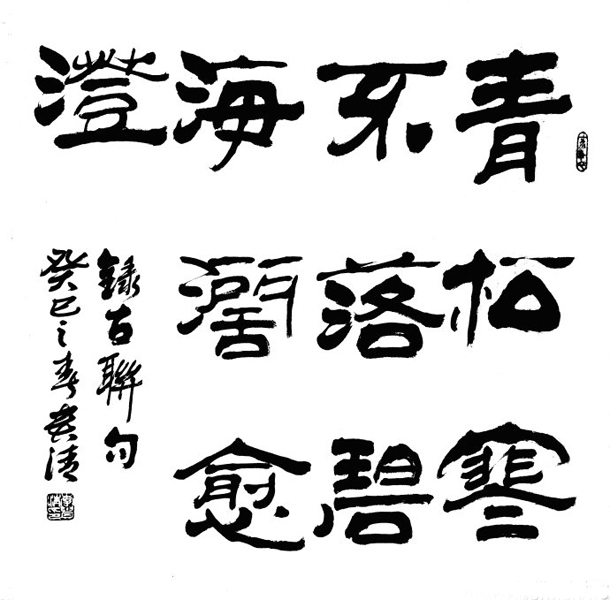 青松寒
不落碧
海濶愈
澄
錄古聯句
癸巳之春貴清